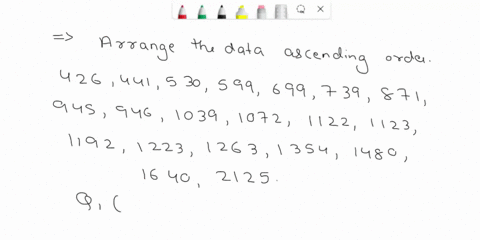 => Arrange the data ascending order.
426, 441, 530, 599, 699, 739, 871,
945, 946, 1039, 1072, 1122, 1123,
1192, 1223, 1263, 1354, 1480,
1640, 2125.
Q₁ (